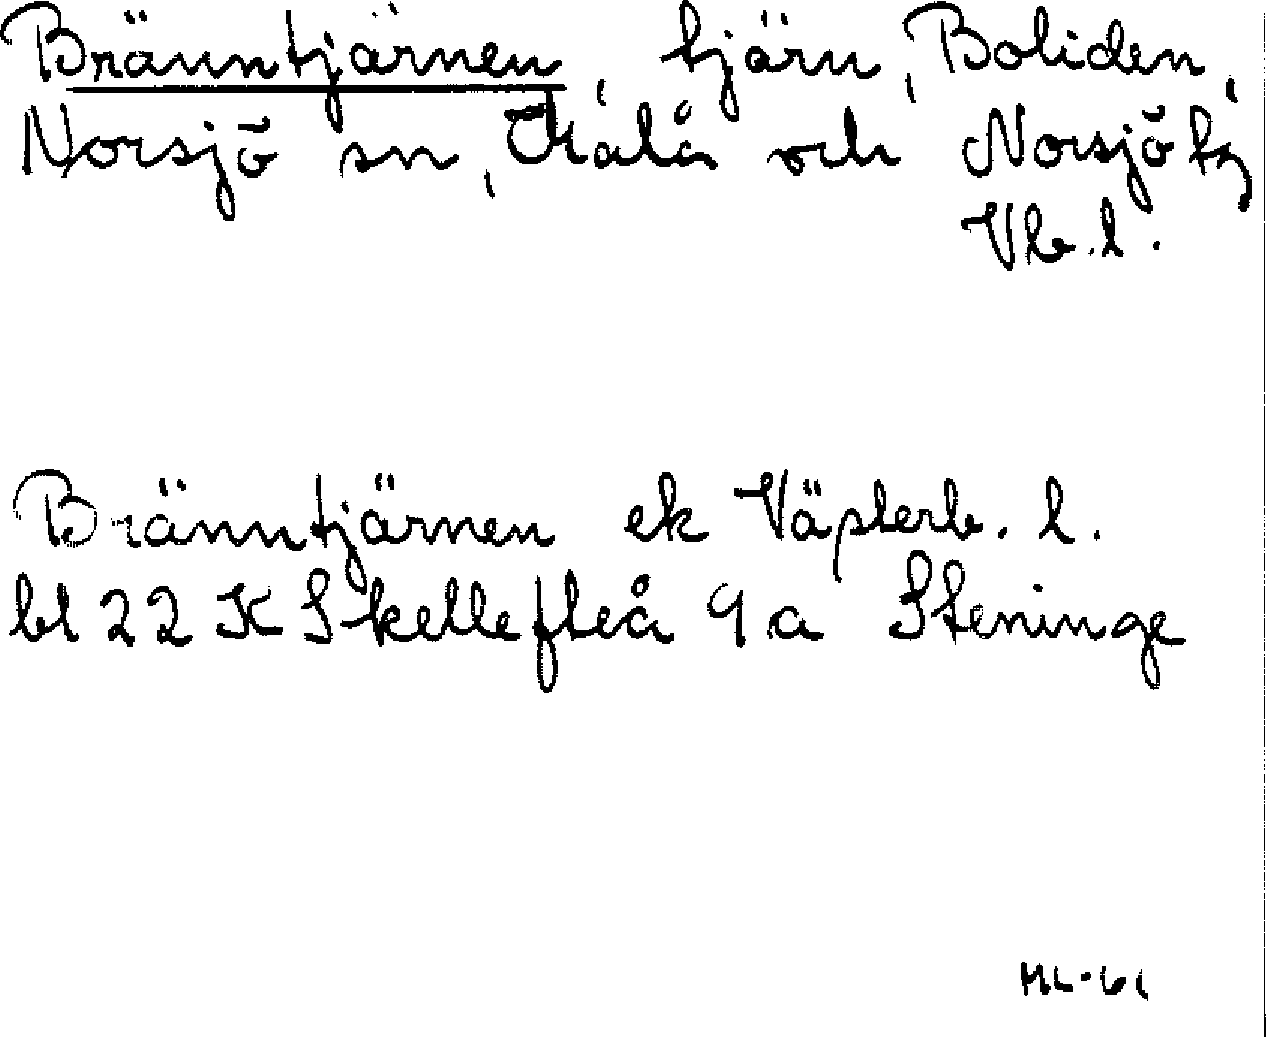 Bränntjärnen, tjärn, Boliden,
Norsjö sn, Malå och Norsjö tg,
Vb. l.
Bränntjärnen ek Västerb. l.
bl 22 K Skellefteå 9 a Steninge
HL-61